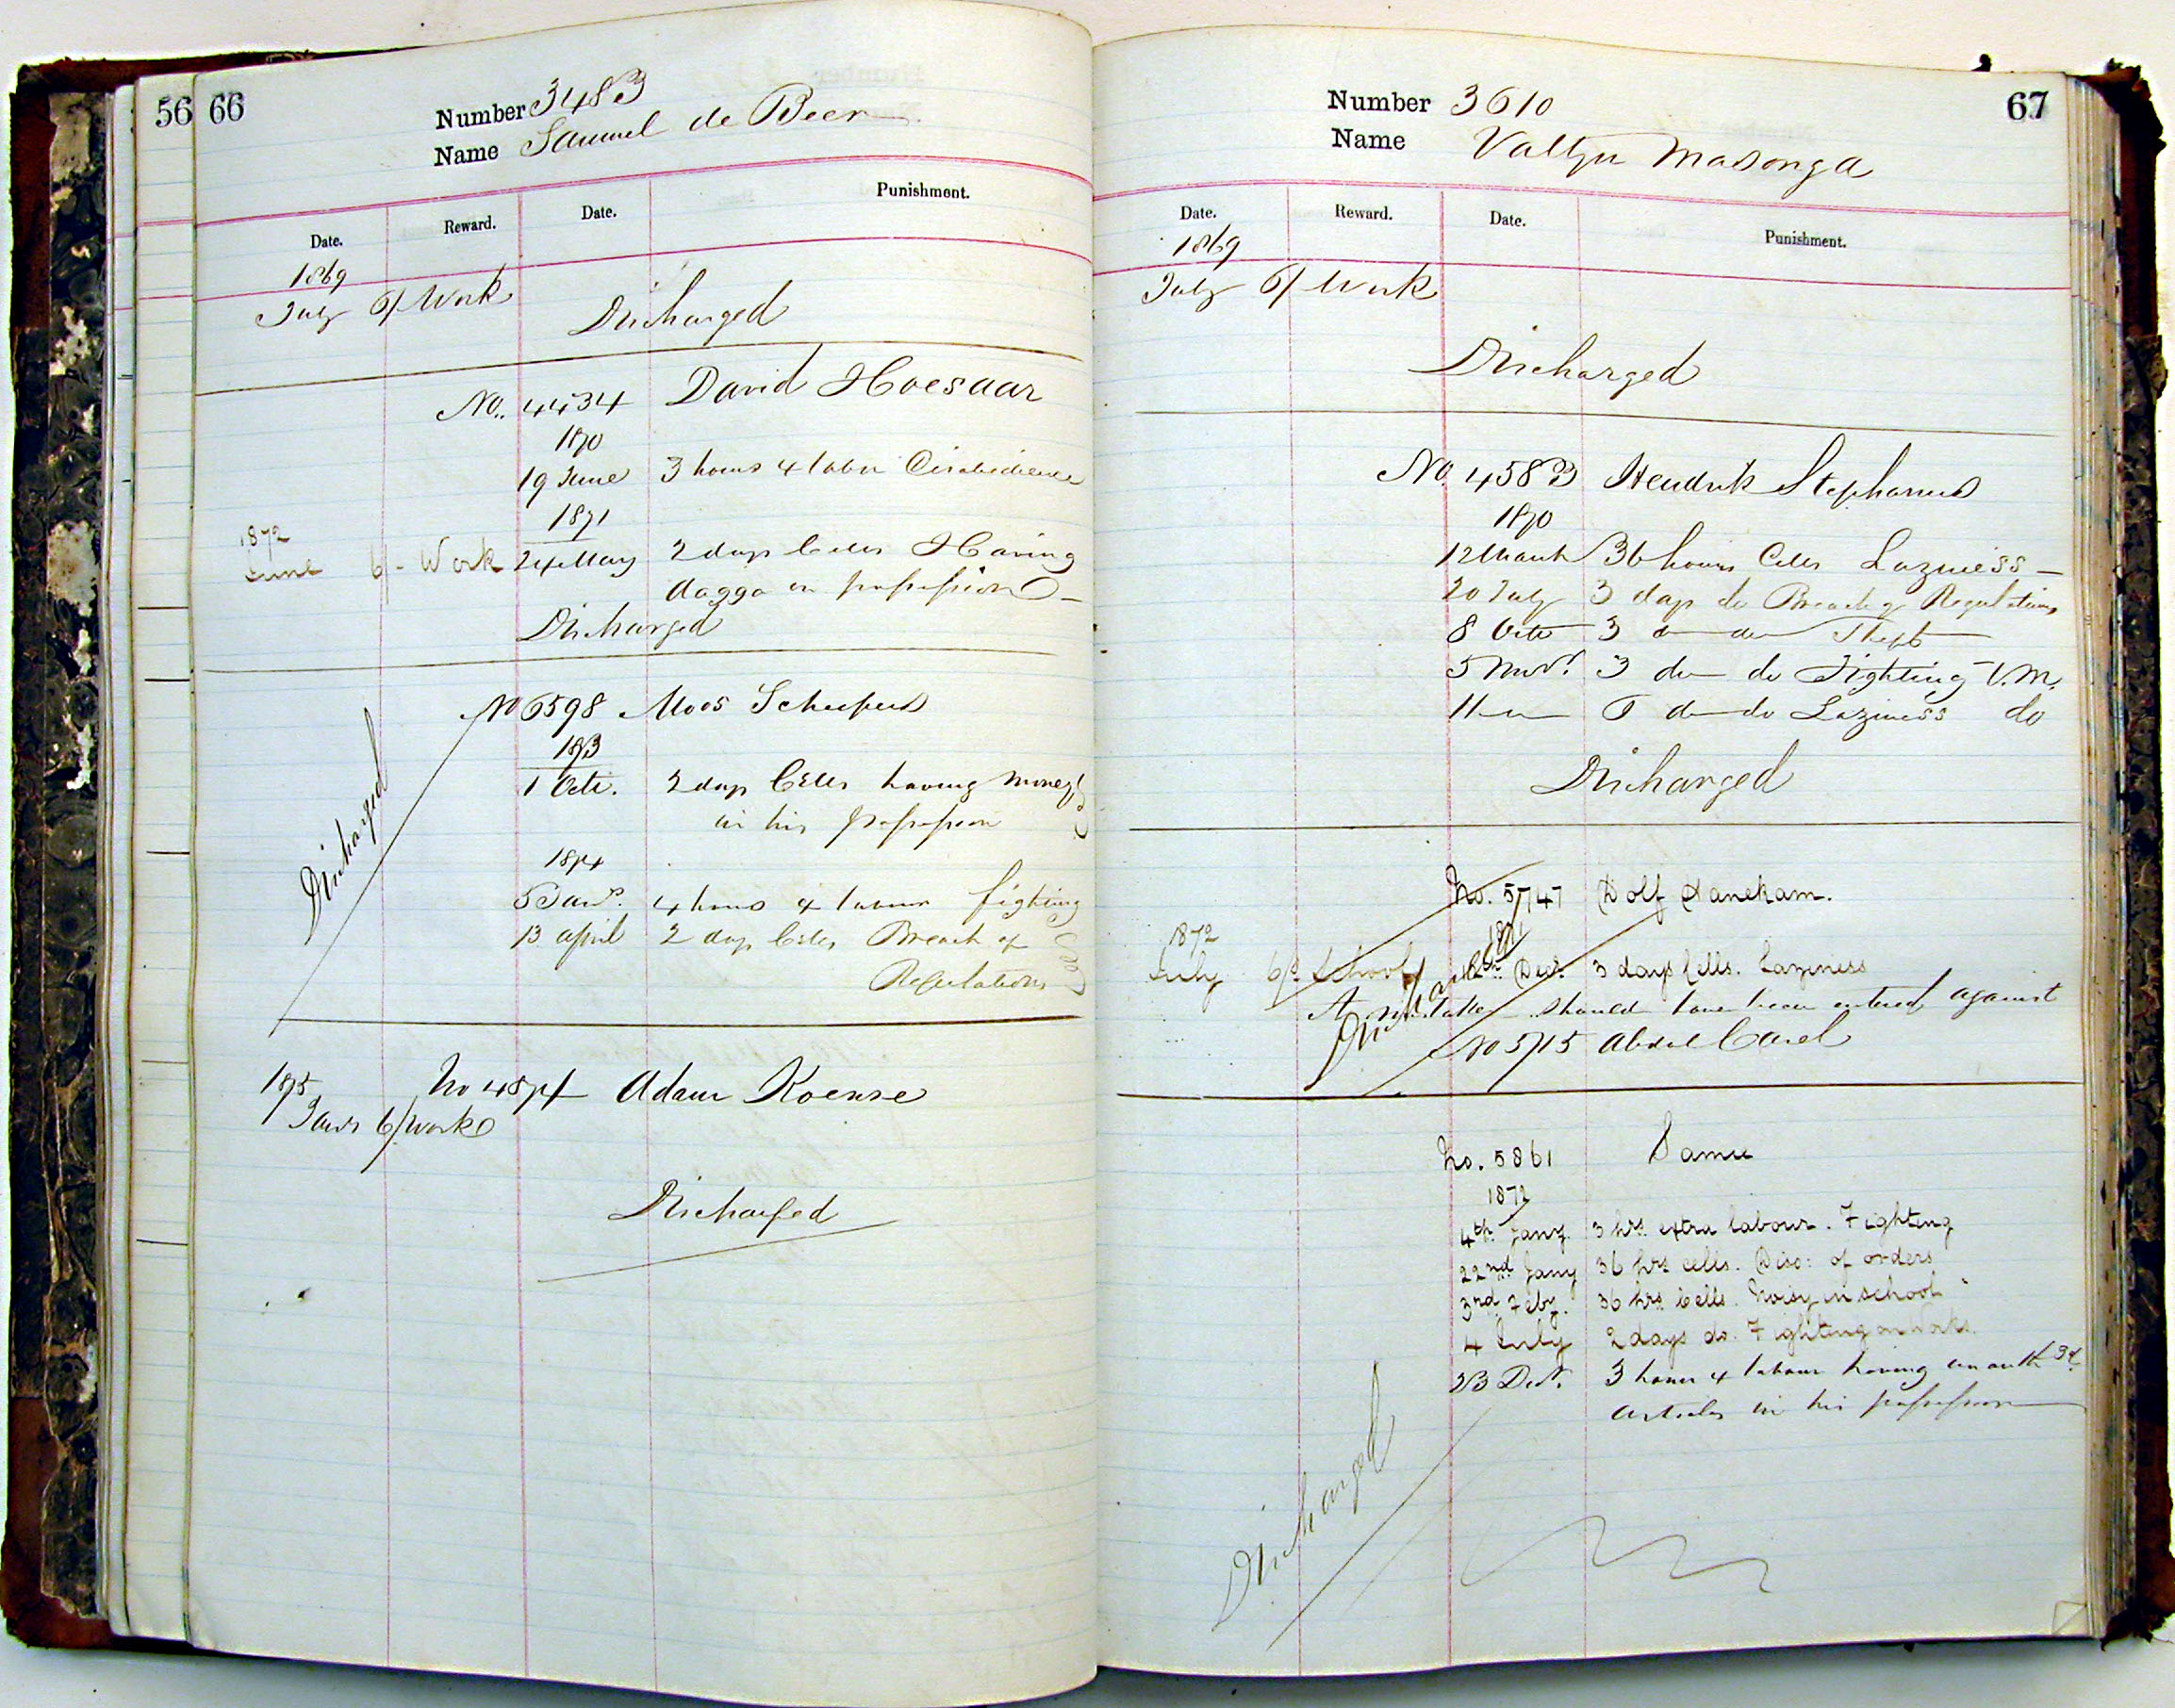 56 66
Number 3483
Name Samuel de Beer
Date. Reward. Date. Punishment.
1869
July 6/ Work
Discharged
No. 4434 David Hoesaar
1870
19 June 3 hours x labor Disobedience
1871
1872
June 6/- Work 24 May 2 days Cells Having
dagga in possession
Discharged
No 6598 Moos Scheepers
1873
1 Octr. 2 days Cells having money
in his possession
Discharged
1874
5 Jany. 4 hours x labour fighting
13 April 2 days Cells Breach of
Regulations
1875 No 4874 Adam Koense
Jany 6/ Work
Discharged
67
Number 3610
Name Valtyn Masonga
Date. Reward. Date. Punishment.
1869
July 6/ Work
Discharged
No. 4583 Hendrik Stephanus
1870
12 March 36 hours Cells Laziness
20 July 3 days do Breach of Regulations
8 Octr 3 do do Theft
5 Novr. 3 do do Fighting V.M.
11 do do Laziness do
Discharged
No. 5747 Dolf Janekam.
1872 1871
July 6/- School Decr. 3 days Cells. Laziness
Discharged
A mistake should have been entered against
No 5715 Abdol Carel
No. 5861 Damie
1872
4th Jany. 3 hrs. extra labour. Fighting
22nd Jany 36 hrs cells. Diso: of orders
3rd Feby. 36 hrs Cells. Noisy in school
4 July 2 days do. Fighting on Works.
23 Decr. 3 hours x labour having unauthd.
articles in his possession
Discharged